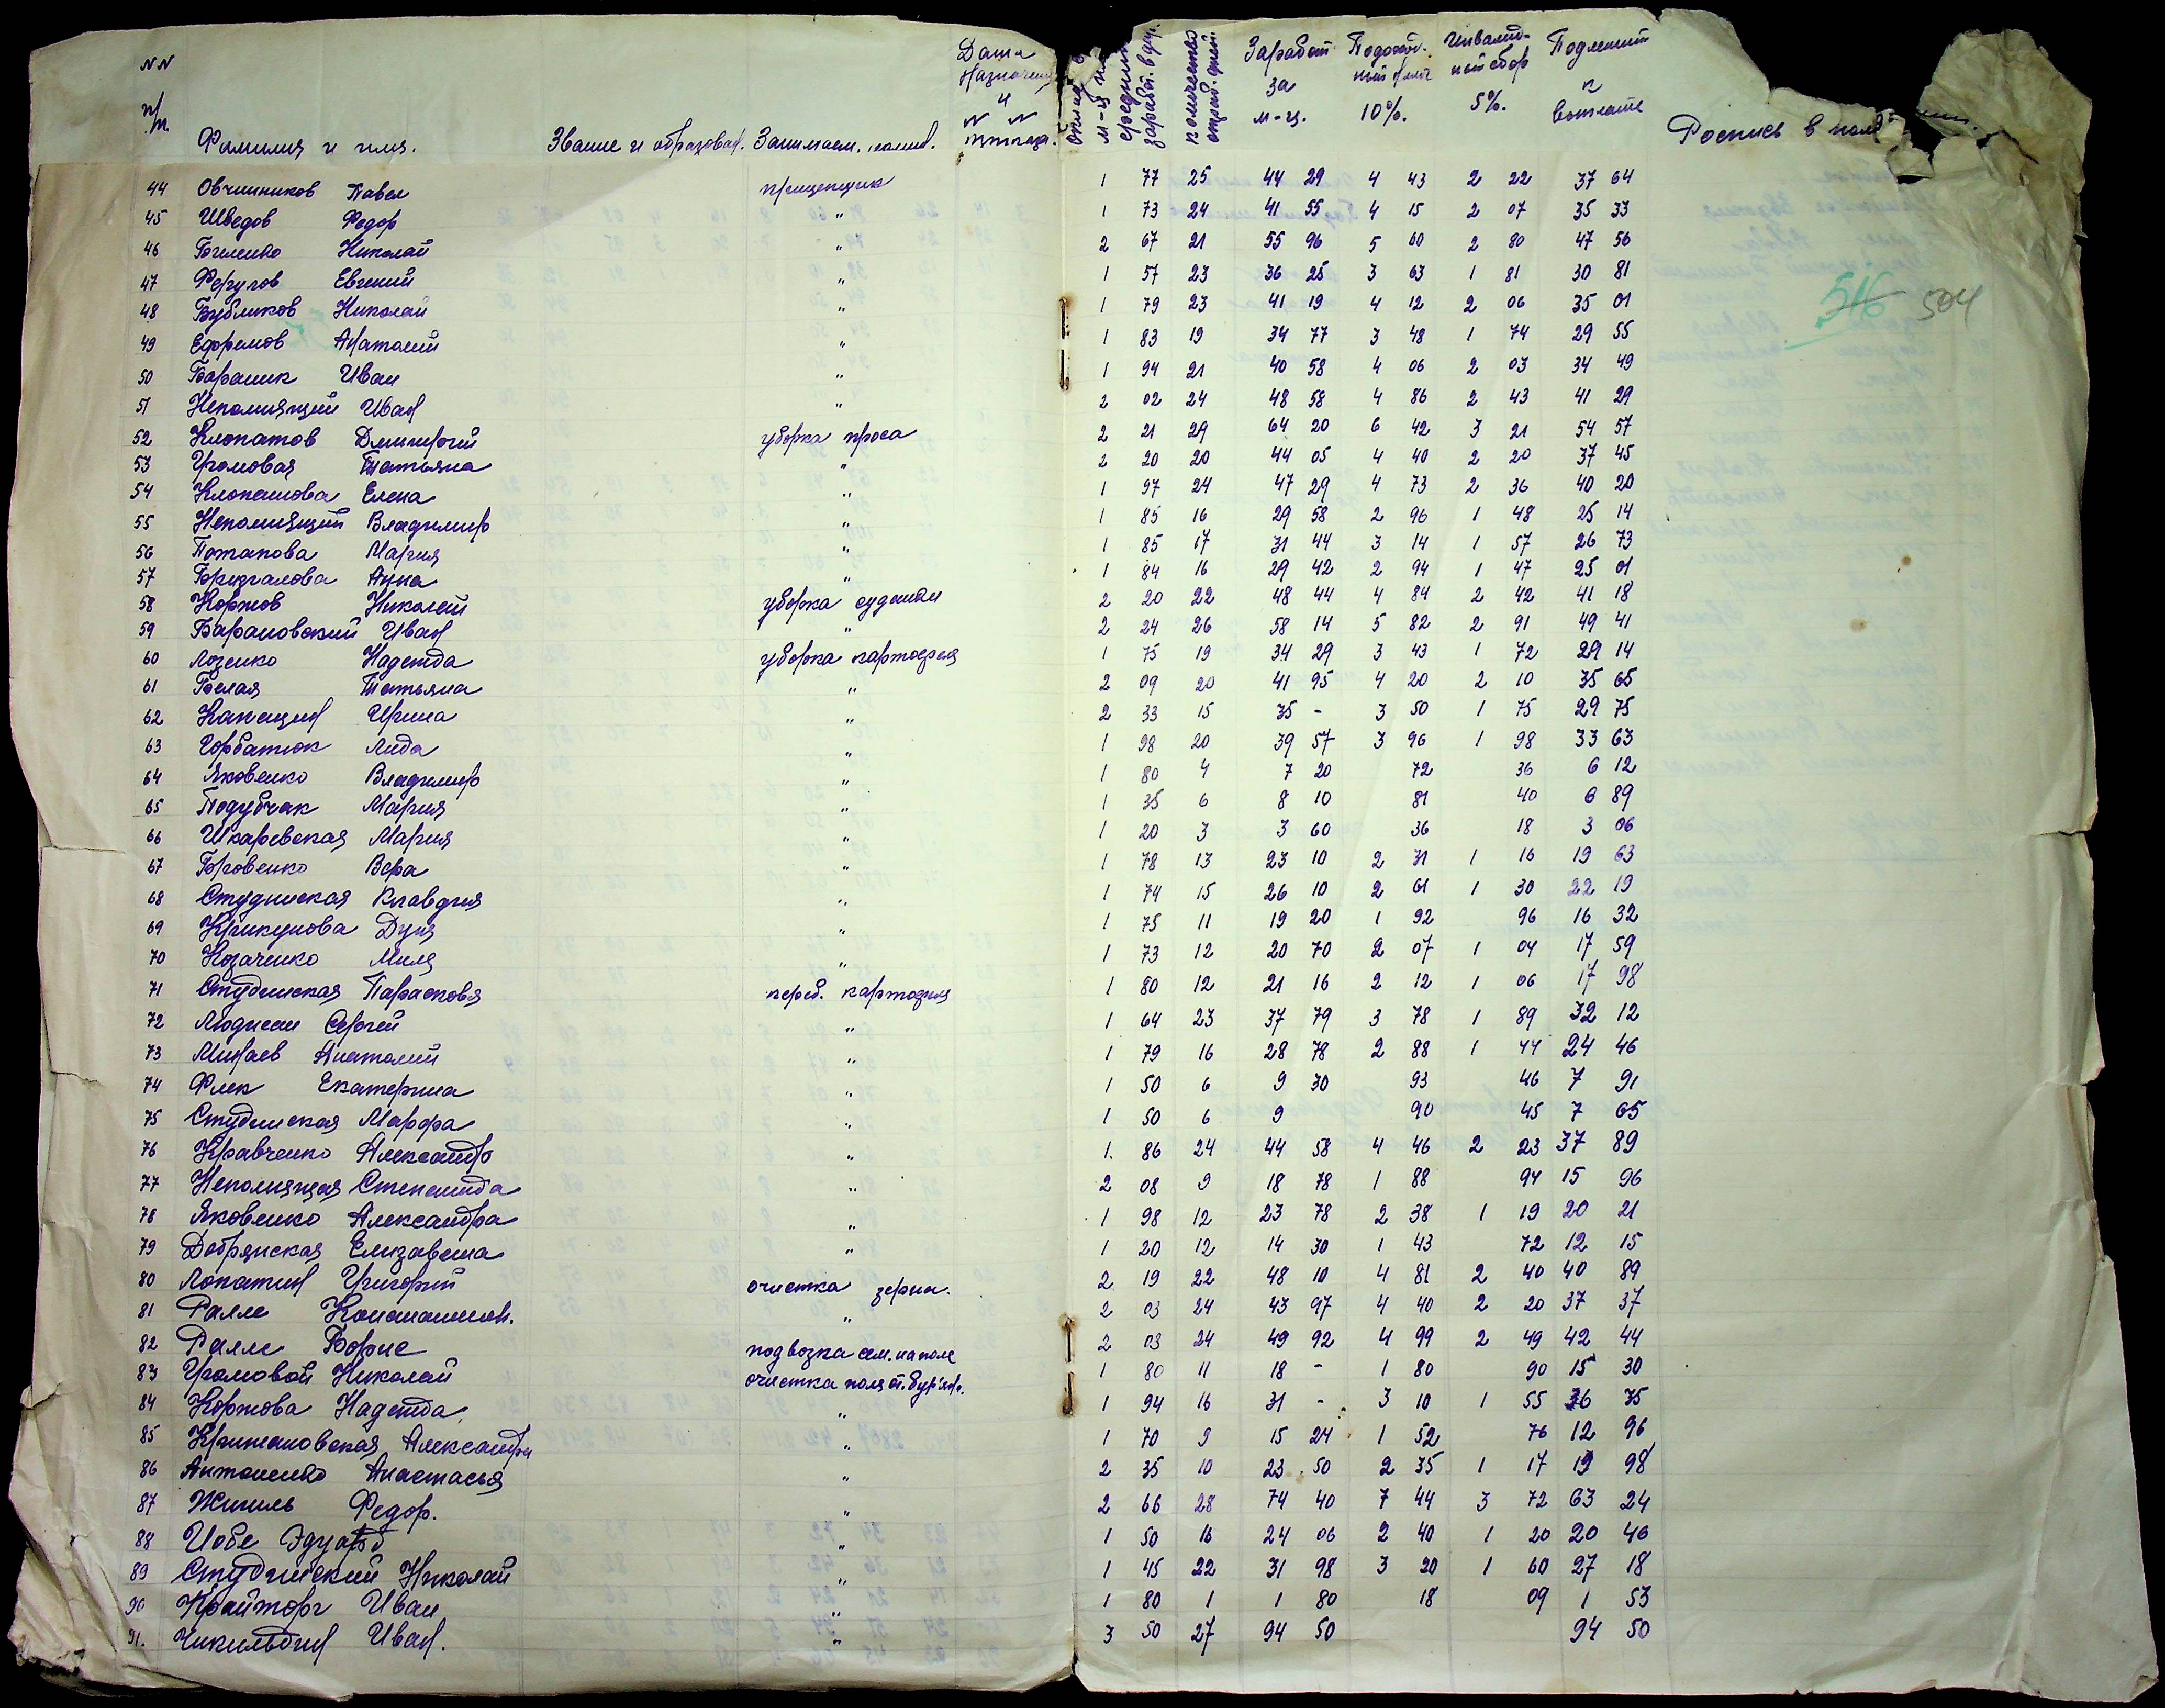 NN п/п. Фамилия и имя. Звание и образован. Занимаем. Дата назначения и NN Заработ за м-ц. Подоход. ный налог 10%. Инвалид- ный сбор 5%. Подлежит к выплате Роспись в
44 Овчинников Павел прицепщик 1 77 25 44 29 4 43 2 22 37 64
45 Шведов Федор " 1 73 24 41 55 4 15 2 07 35 33
46 Николай " 2 67 21 55 96 5 60 2 80 47 56
47 Евгений " 1 57 23 36 25 3 63 1 81 30 81
516 504
48 Бубликов Николай " 1 79 23 41 19 4 12 2 06 35 01
49 Ефремов Анатолий " 1 83 19 34 77 3 48 1 74 29 55
50 Бараник Иван " 1 94 21 40 58 4 06 2 03 34 49
51 Непомнящий Иван " 2 02 24 48 58 4 86 2 43 41 29
52 Клопатов Дмитрий уборка проса 2 21 29 64 20 6 42 3 21 54 57
53 Громовая Татьяна " 2 20 20 44 05 4 40 2 20 37 45
54 Елена " 1 97 24 47 29 4 73 2 36 40 20
55 Непомнящий Владимир " 1 85 16 29 58 2 96 1 48 25 14
56 Потапова Мария " 1 85 17 31 44 3 14 1 57 26 73
57 Анна " 1 84 16 29 42 2 94 1 47 25 01
58 Коржов Николай уборка суданки 2 20 22 48 44 4 84 2 42 41 18
59 Барановский Иван " 2 24 26 58 14 5 82 2 91 49 41
60 Лозенко Надежда уборка картофеля 1 75 19 34 29 3 43 1 72 29 14
61 Белая Татьяна " 2 09 20 41 95 4 20 2 10 35 65
62 Капацин Ирина " 2 33 15 35 - 3 50 1 75 29 75
63 Горбатюк Лида " 1 98 20 39 57 3 96 1 98 33 63
64 Яковенко Владимир " 1 80 4 7 20 72 36 6 12
65 Подубчак Мария " 1 35 6 8 10 81 40 6 89
66 Шкаревская Мария " 1 20 3 3 60 36 18 3 06
67 Бровенко Вера " 1 78 13 23 10 2 31 1 16 19 63
68 Студинская Клавдия " 1 74 15 26 10 2 61 1 30 22 19
69 Крикунова Дуня " 1 75 11 19 20 1 92 96 16 32
70 Козаченко Миля " 1 73 12 20 70 2 07 1 04 17 59
71 Студинская Парасковя переб. картофеля 1 80 12 21 16 2 12 1 06 17 98
72 Людисан Сергей " 1 64 23 37 79 3 78 1 89 32 12
73 Минаев Анатолий " 1 79 16 28 78 2 88 1 44 24 46
74 Флек Екатерина 1 50 6 9 30 93 46 7 91
75 Студинская Марфа " 1 50 6 9 90 45 7 65
76 Кравченко Александр " 1 86 24 44 58 4 46 2 23 37 89
77 Непомнящая Степанида " 2 08 9 18 78 1 88 94 15 96
78 Яковенко Александра " 1 98 12 23 78 2 38 1 19 20 21
79 Добрянская Елизавета " 1 20 12 14 30 1 43 72 12 15
80 Лопатин Григорий очистка зерна. 2 19 22 48 10 4 81 2 40 40 89
81 Ралле Константин. " 2 03 24 43 97 4 40 2 20 37 37
82 Ралле Борис подвозка сем. на поле 2 03 24 49 92 4 99 2 49 42 44
83 Громовой Николай очистка поля от. бур'ян. 1 80 11 18 - 1 80 90 15 30
84 Коржова Надежда " 1 94 16 31 - 3 10 1 55 26 35
85 Кримановская Александра " 1 70 9 15 24 1 52 76 12 96
86 Антоненко Анастасья " 2 35 10 23 50 2 35 1 17 19 98
87 Жигиль Федор. " 2 66 28 74 40 7 44 3 72 63 24
88 Эдуард " 1 50 16 24 06 2 40 1 20 20 46
89 Студинский Николай " 1 45 22 31 98 3 20 1 60 27 18
90 Крайторг Иван " 1 80 1 1 80 18 09 1 53
91. Чикильдин Иван. " 3 50 27 94 50 94 50